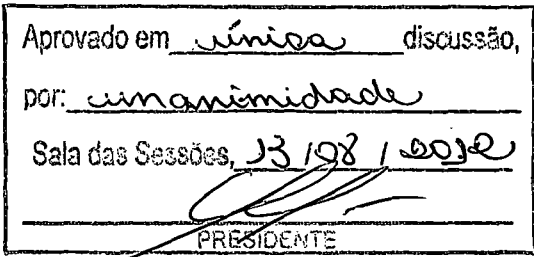 Aprovado em única discussão,
por: unanimidade
Sala das Sessões, 13 / 08 / 2012
PRESIDENTE